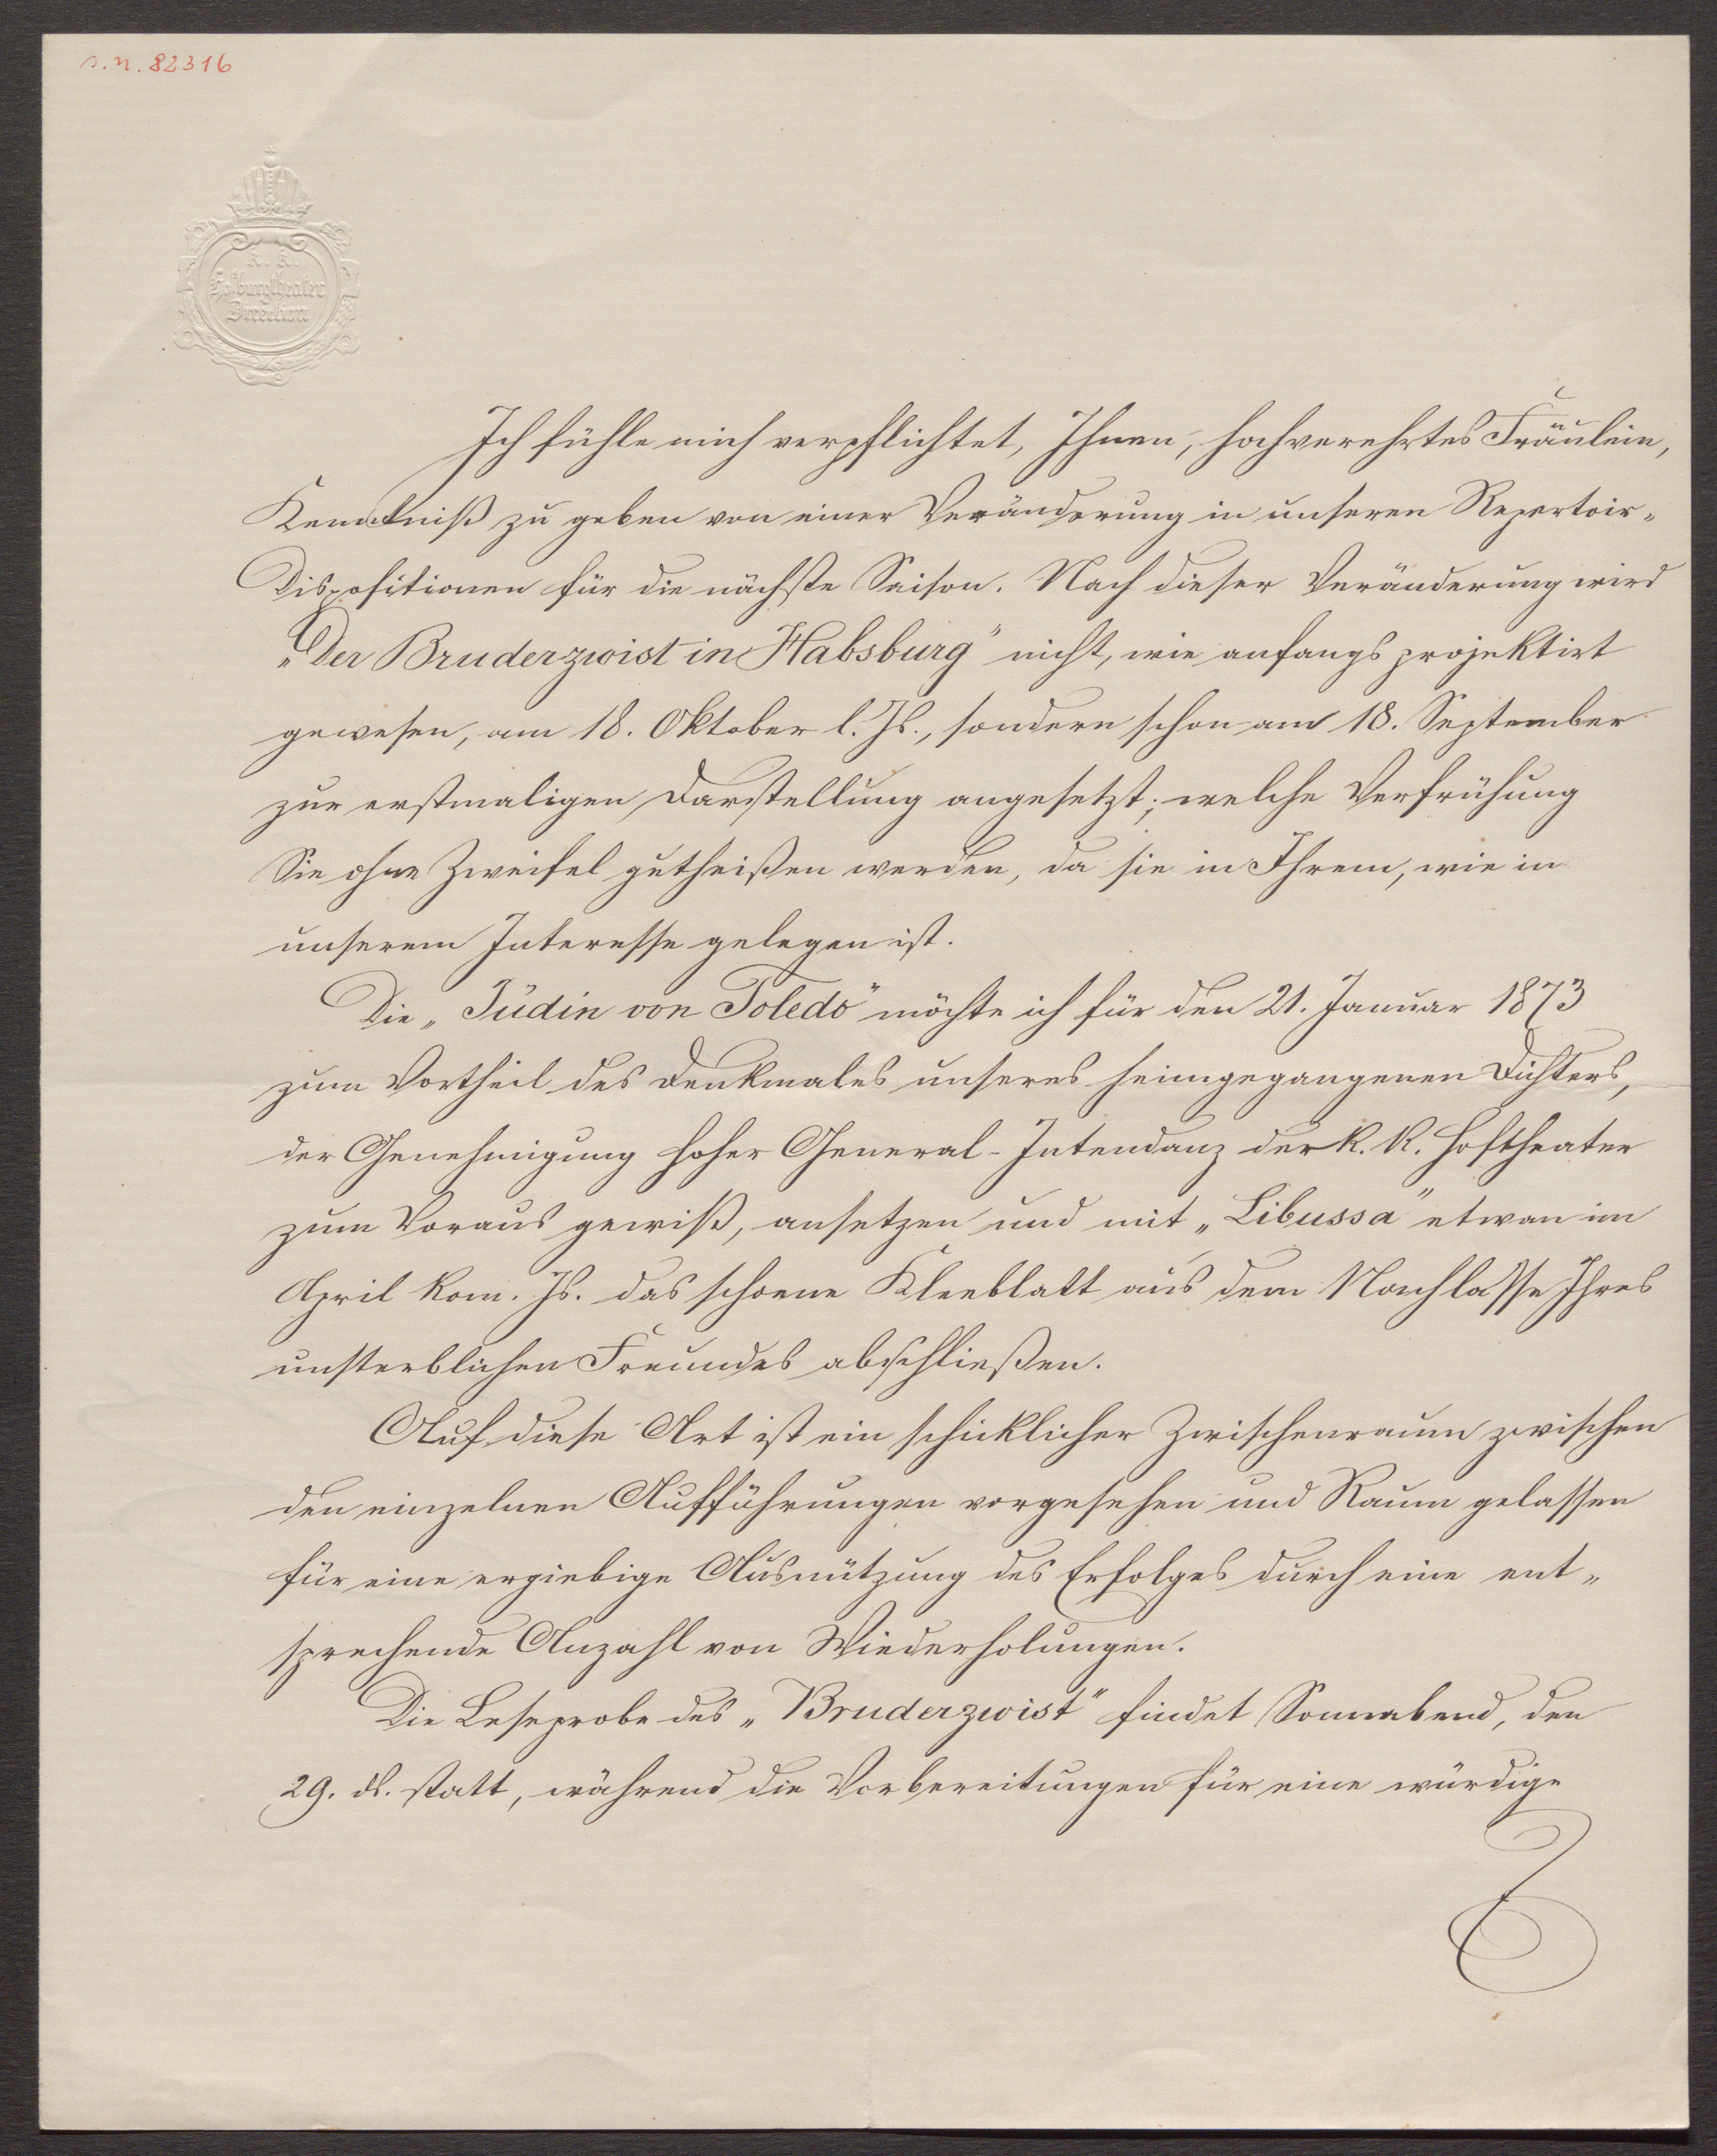 s. n. 82316
K. K.
Hofburgtheater
Direction
Ich fühle mich verpflichtet, Ihnen, hochverehrtes Fräulein,
Kenntniß zu geben von einer Veränderung in unseren Repertoir-
Dispositionen für die nächste Saison. Nach dieser Veränderung wird
„Der Bruderzwist in Habsburg" nicht, wie anfangs projektirt
gewesen, am 18. Oktober l. Js., sondern schon am 18. September
zur erstmaligen Darstellung angesetzt; welche Verfrühung
Sie ohne Zweifel gutheißen werden, da sie in Ihrem, wie in
unserem Interesse gelegen ist.
Die „Jüdin von Toledo" möchte ich für den 21. Januar 1873
zum Vortheil des Denkmales unseres heimgegangenen Dichters,
der Genehmigung hoher General-Intendanz der k. k. Hoftheater
zum Voraus gewiß, ansetzen und mit „Libussa" etwan im
April kom. Js. das schoene Kleeblatt aus dem Nachlasse Ihres
unsterblichen Freundes abschließen.
Auf diese Art ist ein schicklicher Zwischenraum zwischen
den einzelnen Aufführungen vorgesehen und Raum gelassen
für eine ergiebige Ausnützung des Erfolges durch eine ent-
sprechende Anzahl von Wiederholungen.
Die Leseprobe des „Bruderzwist" findet Sonnabend, den
29. ds. statt, während die Vorbereitungen für eine würdige